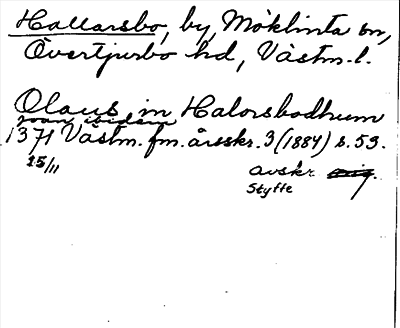 Hallarsbo, by, Möklinta sn,
Övertjurbo hd, Västm. l.
Olaus in Halorsbodhum
ibidem
1371 Västm. fm. årsskr. 3 (1884) s. 53.
25/11
avskr. orig.
Styffe